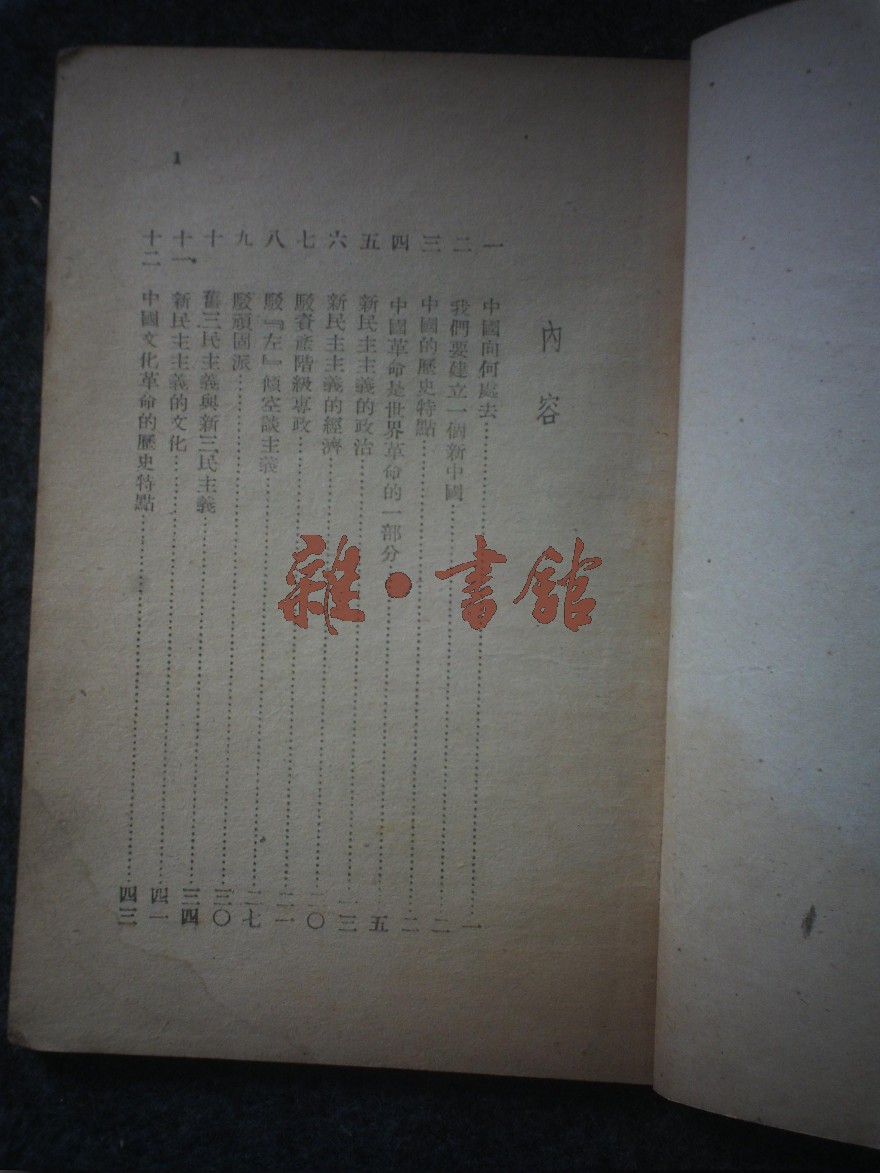 內容
一　中國向何處去……一
二　我們要建立一個新中國……二
三　中國的歷史特點……二
四　中國革命是世界革命的一部分……五
五　新民主主義的政治……一三
六　新民主主義的經濟……二〇
七　駁資產階級專政……二一
八　駁『左』傾空談主義……二七
九　駁頑固派……三〇
十　舊三民主義與新三民主義……三四
十一　新民主主義的文化……四一
十二　中國文化革命的歷史特點……四三
1
雜·書館